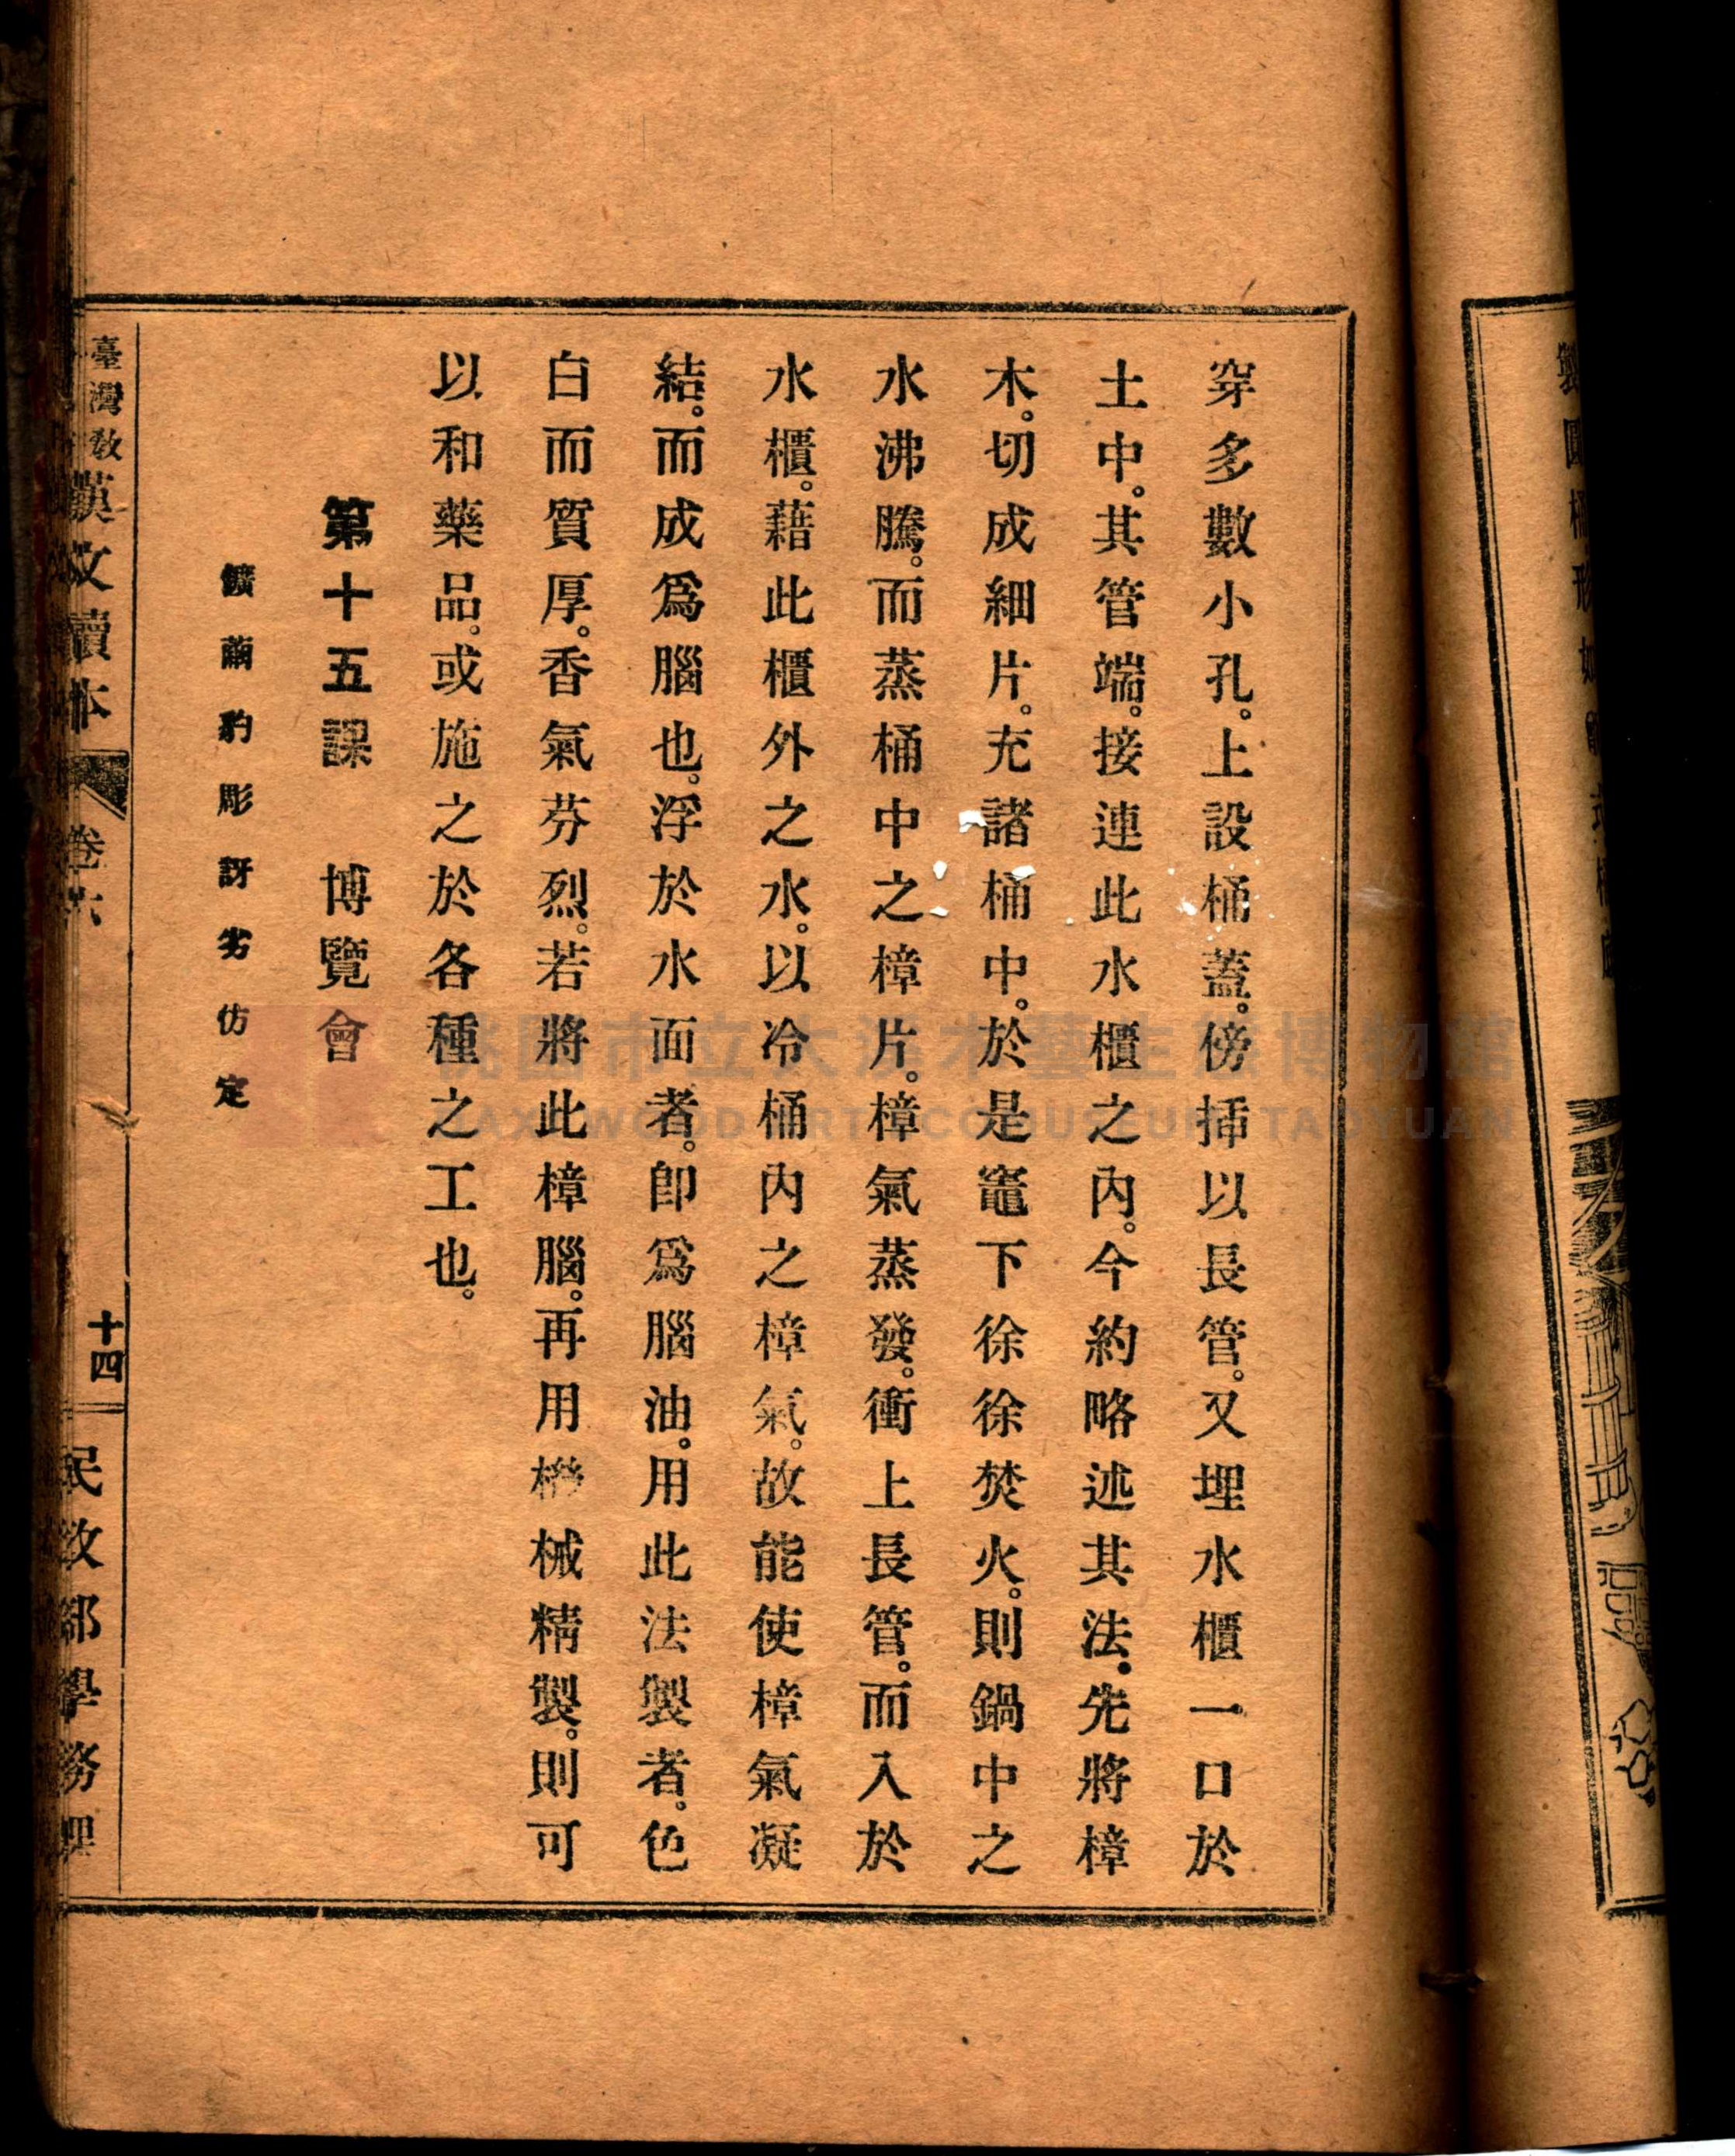 穿多數小孔。上設桶蓋。傍挿以長管。又埋水櫃一口於
土中。其管端。接連此水櫃之內。今約略述其法。先將樟
木。切成細片。充諸桶中。於是竈下徐徐焚火。則鍋中之
水沸騰。而蒸桶中之樟片。樟氣蒸發。衝上長管。而入於
水櫃。藉此櫃外之水。以冷桶內之樟氣。故能使樟氣凝
結。而成爲腦也。浮於水面者。卽爲腦油。用此法製者。色
白而質厚。香氣芬烈。若將此樟腦。再用機械精製。則可
以和藥品。或施之於各種之工也。
第十五課 博覽會
鑛繭豹彫訝劣仿定
臺灣敎
漢文讀本 卷六 十四 民政部學務課
桃園市立大溪木藝生態博物館
DAXI WOOD ART ECOMUSEUM, TAOYUAN